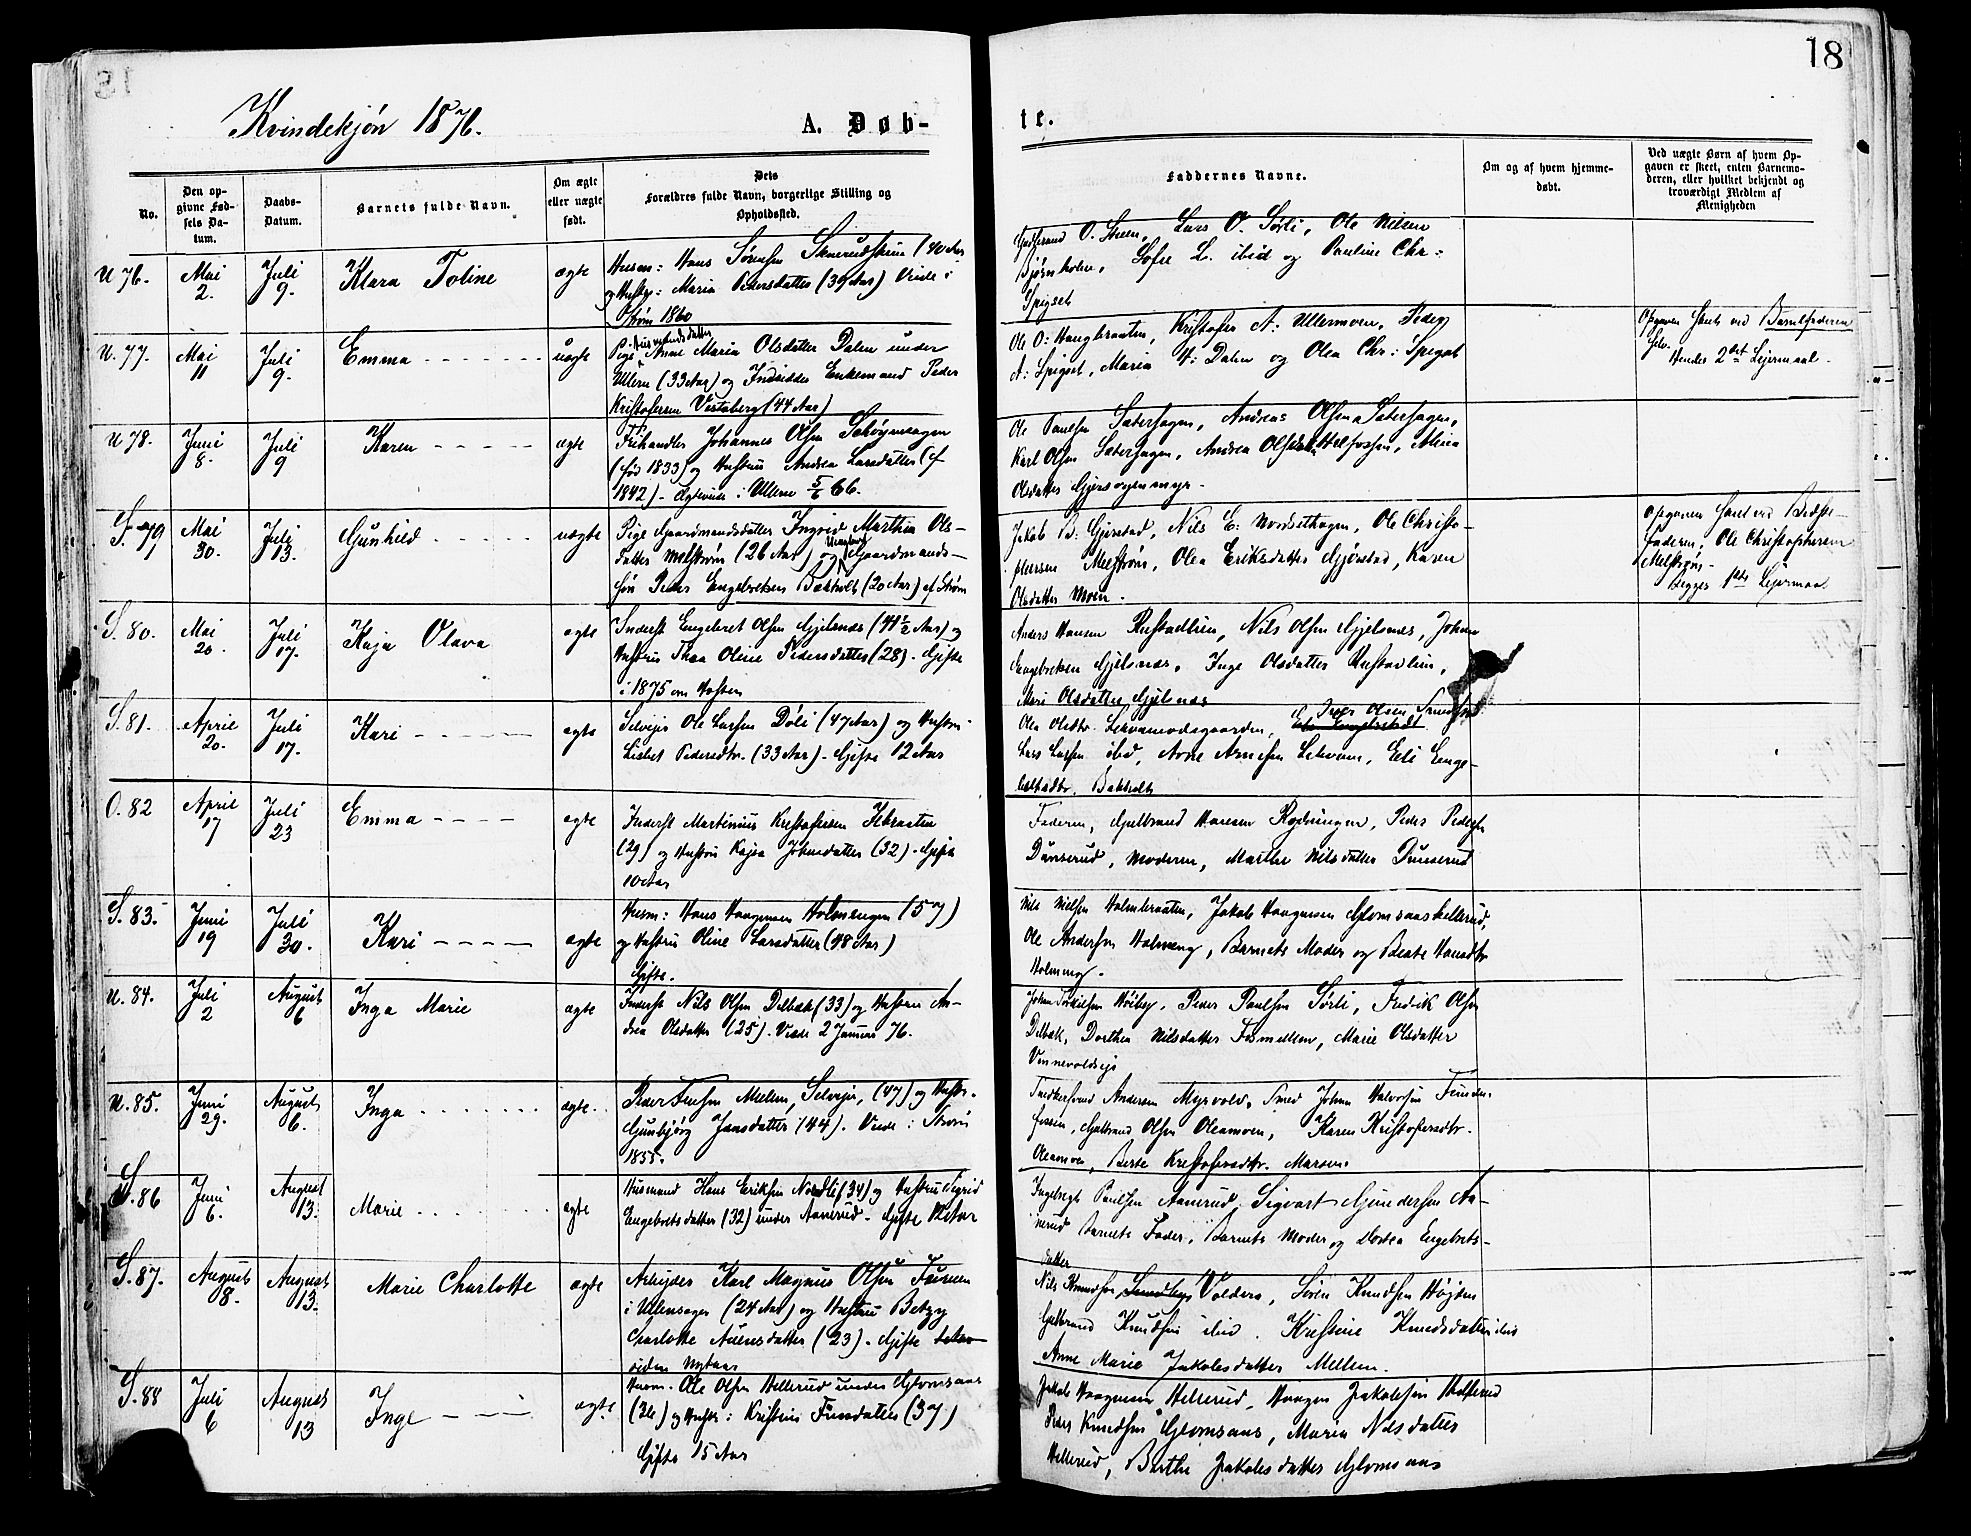 18
Kvindekjøn 1876.
A. Døb-
te.
No.
Den opgivne Fødsels Datum.
Daabs-Datum.
Barnets fulde Navn.
Om ægte eller uægte født.
Dets Forældres fulde Navn, borgerlige Stilling og Opholdssted.
Faddernes Navne.
Om og af hvem hjemmedøbt.
Ved uægte Børn af hvem Opgaven er skeet, enten Barnemoderen, eller hvilket bekjendt og troværdigt Medlem af Menigheden
U 76. Mai 2. Juli 9. Klara Toline ægte
Husm: Hans Sørensen (40 Aar
og Hustr: Maria Pedersdatter (39 Aar) Viede i
Strøm 1860
O. Steen, Lars O. Sørli, Ole Nilsen
Bjørnholen, Sofie L. ibid og Pauline Chr:
Spigset
U. 77. Mai 11 Juli 9. Emma uægte
Pige Husmandsdatter Anne Maria Olsdatter Dalen under
Ullern (33 Aar) og Indsidder Enkemand Peder
Kristofersen Vestaberg (44 Aar)
Ole O: Haugbraaten, Kristofer A: Ullernmoen, Peder
A: Spigset, Maria H: Dalen og Olea Chr: Spigset
Opgaven skeet ved Barnefaderen
selv.
Hendes 2det Lejermaal.
U 78. Juni 8. Juli 9 Karen ægte
Frihandler Johannes Olsen
(fød 1833) og Hustru Andrea Larsdatter (f
1842) - Ægteviede i Ullern 5/6 66.
Ole Paulsen Sæterhagen, Andreas Olsen Sæterhagen,
Karl Olsen Sæterhagen, Andrea, Alma
Olsdatter
S. 79 Mai 30. Juli 13. Gunhild uægte
Pige Gaardmandsdatter Ingrid Marthia Ols-
datter Melstrøm (26 Aar) og Ungkarl Gaardmands-
søn Peder Engebretsen Bakholt (20 Aar) af Strøm
Jakob B: Gjerstad, Nils E: Nordsethagen, Ole Christo-
phersen Melstrøm, Olea Eriksdatter Gjørstad, Karen
Olsdatter Moen.
Opgaven skeet ved Bedste-
faderen, Ole Christophersen
Melstrøm.
Begges 1ste Lejermaal
S. 80. Mai 20. Juli 17. Kaja Olava ægte
Inderst Engebret Olsen Gjelsnæs (41 1/2 Aar) og
Hustru Thea Oline Pedersdatter (28). Gifte
i 1875 om Høsten
Anders Hansen Rustadlien, Nils Olsen Gjelsnæs, Johan
Engebretsen Gjelsnæs, Inge Olsdatter Rustadlien,
Mari Olsdatter Gjelsnæs
S. 81. April 20. Juli 17. Kari ægte
Selvejer Ole Larsen Døli (47 Aar) og Hustru
Lisbet Pedersdtr. (33 Aar). Gifte 12 Aar
Iver Olsen
Olea Olsdtr.
Lars Larsen ibid, Arne Arnesen, Eli Enge-
bretsdtr. Bakholt
O. 82 April 17 Juli 23 Emma ægte
Inderst Martinius Kristofersen
(29) og Hustru Kajsa Johnsdatter (32). Gifte
10 Aar
Faderen, Gulbrand Hansen Rydningen, Peder Pedersen
Dunserud, Moderen, Marthe Nilsdatter Dunserud
S. 83. Juni 19 Juli 30. Kari ægte
Husm: Hans Haagensen Holmengen (57)
og Hustru Oline Larsdatter (48 Aar)
Gifte.
Nils Nielsen Holmbraaten, Jakob Haagensen Glomsaashellerud,
Ole Andersen Holmeng, Barnets Moder og Beate Hansdtr
Holmeng.
U. 84. Juli 2 August 6 Inga Marie ægte
Inderst Nils Olsen Delbæk (33) og Hustru An-
drea Olsdatter (25). Viede 2 Januar 76.
Johan, Peder Paulsen Sørli, Fredrik Olsen
Delbæk, Dorthea Nilsdatter, Marie Olsdatter
Vennevoldseje
U. 85. Juni 29. August 6. Inga ægte
Peder Mellem, Selvejer, (47) og Hustr.
Gunbjørg Jansdatter (44). Viede i Strøm
1855.
Andersen Myrvold, Smed Johan Halvorsen
Gulbrand Olsen Oleamoen, Karen Kristofersdtr.
Oleamoen, Berte Kristofersdtr.
S. 86 Juni 6. August 13. Marie ægte
Husmand Hans Eriksen Nordli (34) og Hustru Sigrid
Engebretsdatter (32) under Aanerud. Gifte
Ingebregt Paulsen Aanerud, Sigvart Gundersen Aa-
nerud Barnets Fader, Barnets Moder og Dorthea Engebrets-
datter
S. 87. August 8. August 13. Marie Charlotte ægte
Arbejder Karl Magnus Olsen Furuen
i Ullensager (24 Aar) og Hustru Betzy
Charlotte (23). Gifte
siden Nytaar
Nils Knudsen Voldera, Søren Knudsen Højden
Gulbrand Knudsen ibid, Kristine Knudsdatter ibid
Anne Marie Jakobsdatter Mellem.
S. 88 Juli 6 August 13 Inge ægte
Husm. Ole Olsen Hellerud under Glomsaas
(36) og Hustr: Kristine (37)
Gifte 15 Aar
Jakob Haagensen Hellerud, Haagen Jakobsen Hellerud
Peder Knudsen Glomsaas, Maria Nilsdatter
Hellerud, Berthe Jakobsdatter Glomsaas